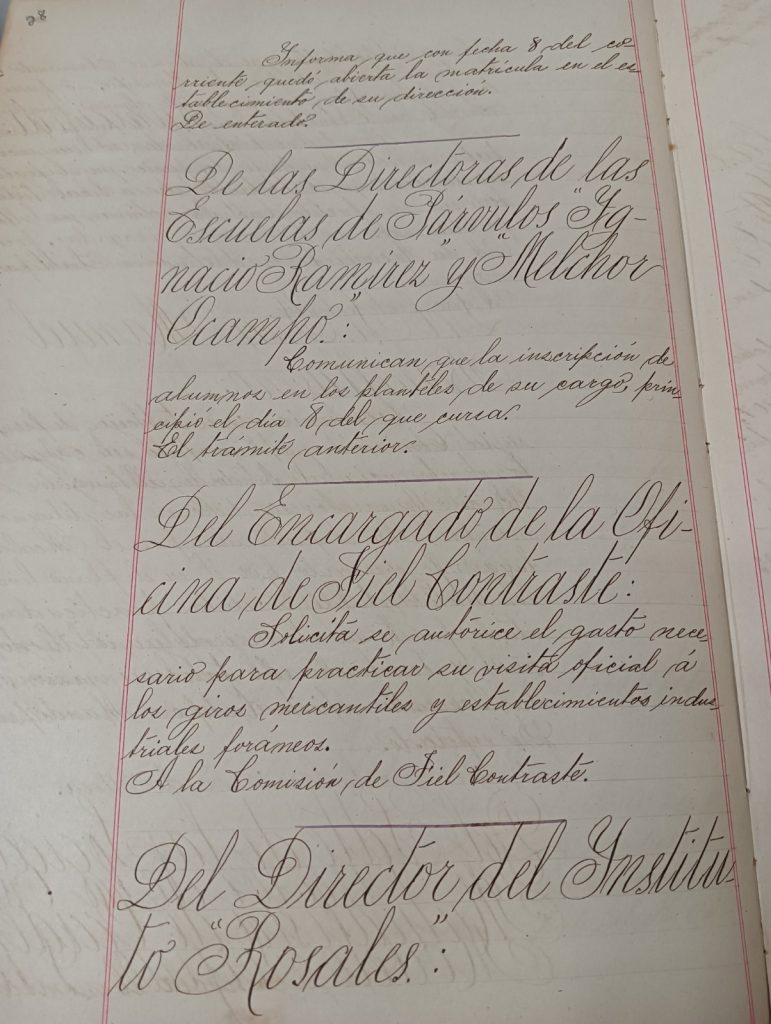 28
Informa que con fecha 8 del co-
rriente quedó abierta la matrícula en el es-
tablecimiento de su dirección.
De enterado.
De las Directoras de las
Escuelas de Párvulos "Ig-
nacio Ramírez" y "Melchor
Ocampo.":
Comunican que la inscripción de
alumnos en los planteles de su cargo, prin-
cipió el día 8 del que cursa.
El trámite anterior.
Del Encargado de la Ofi-
cina de Fiel Contraste:
Solicita se autorice el gasto nece-
sario para practicar su visita oficial á
los giros mercantiles y establecimientos indus-
triales foráneos.
A la Comisión de Fiel Contraste.
Del Director del Institu-
to "Rosales.":